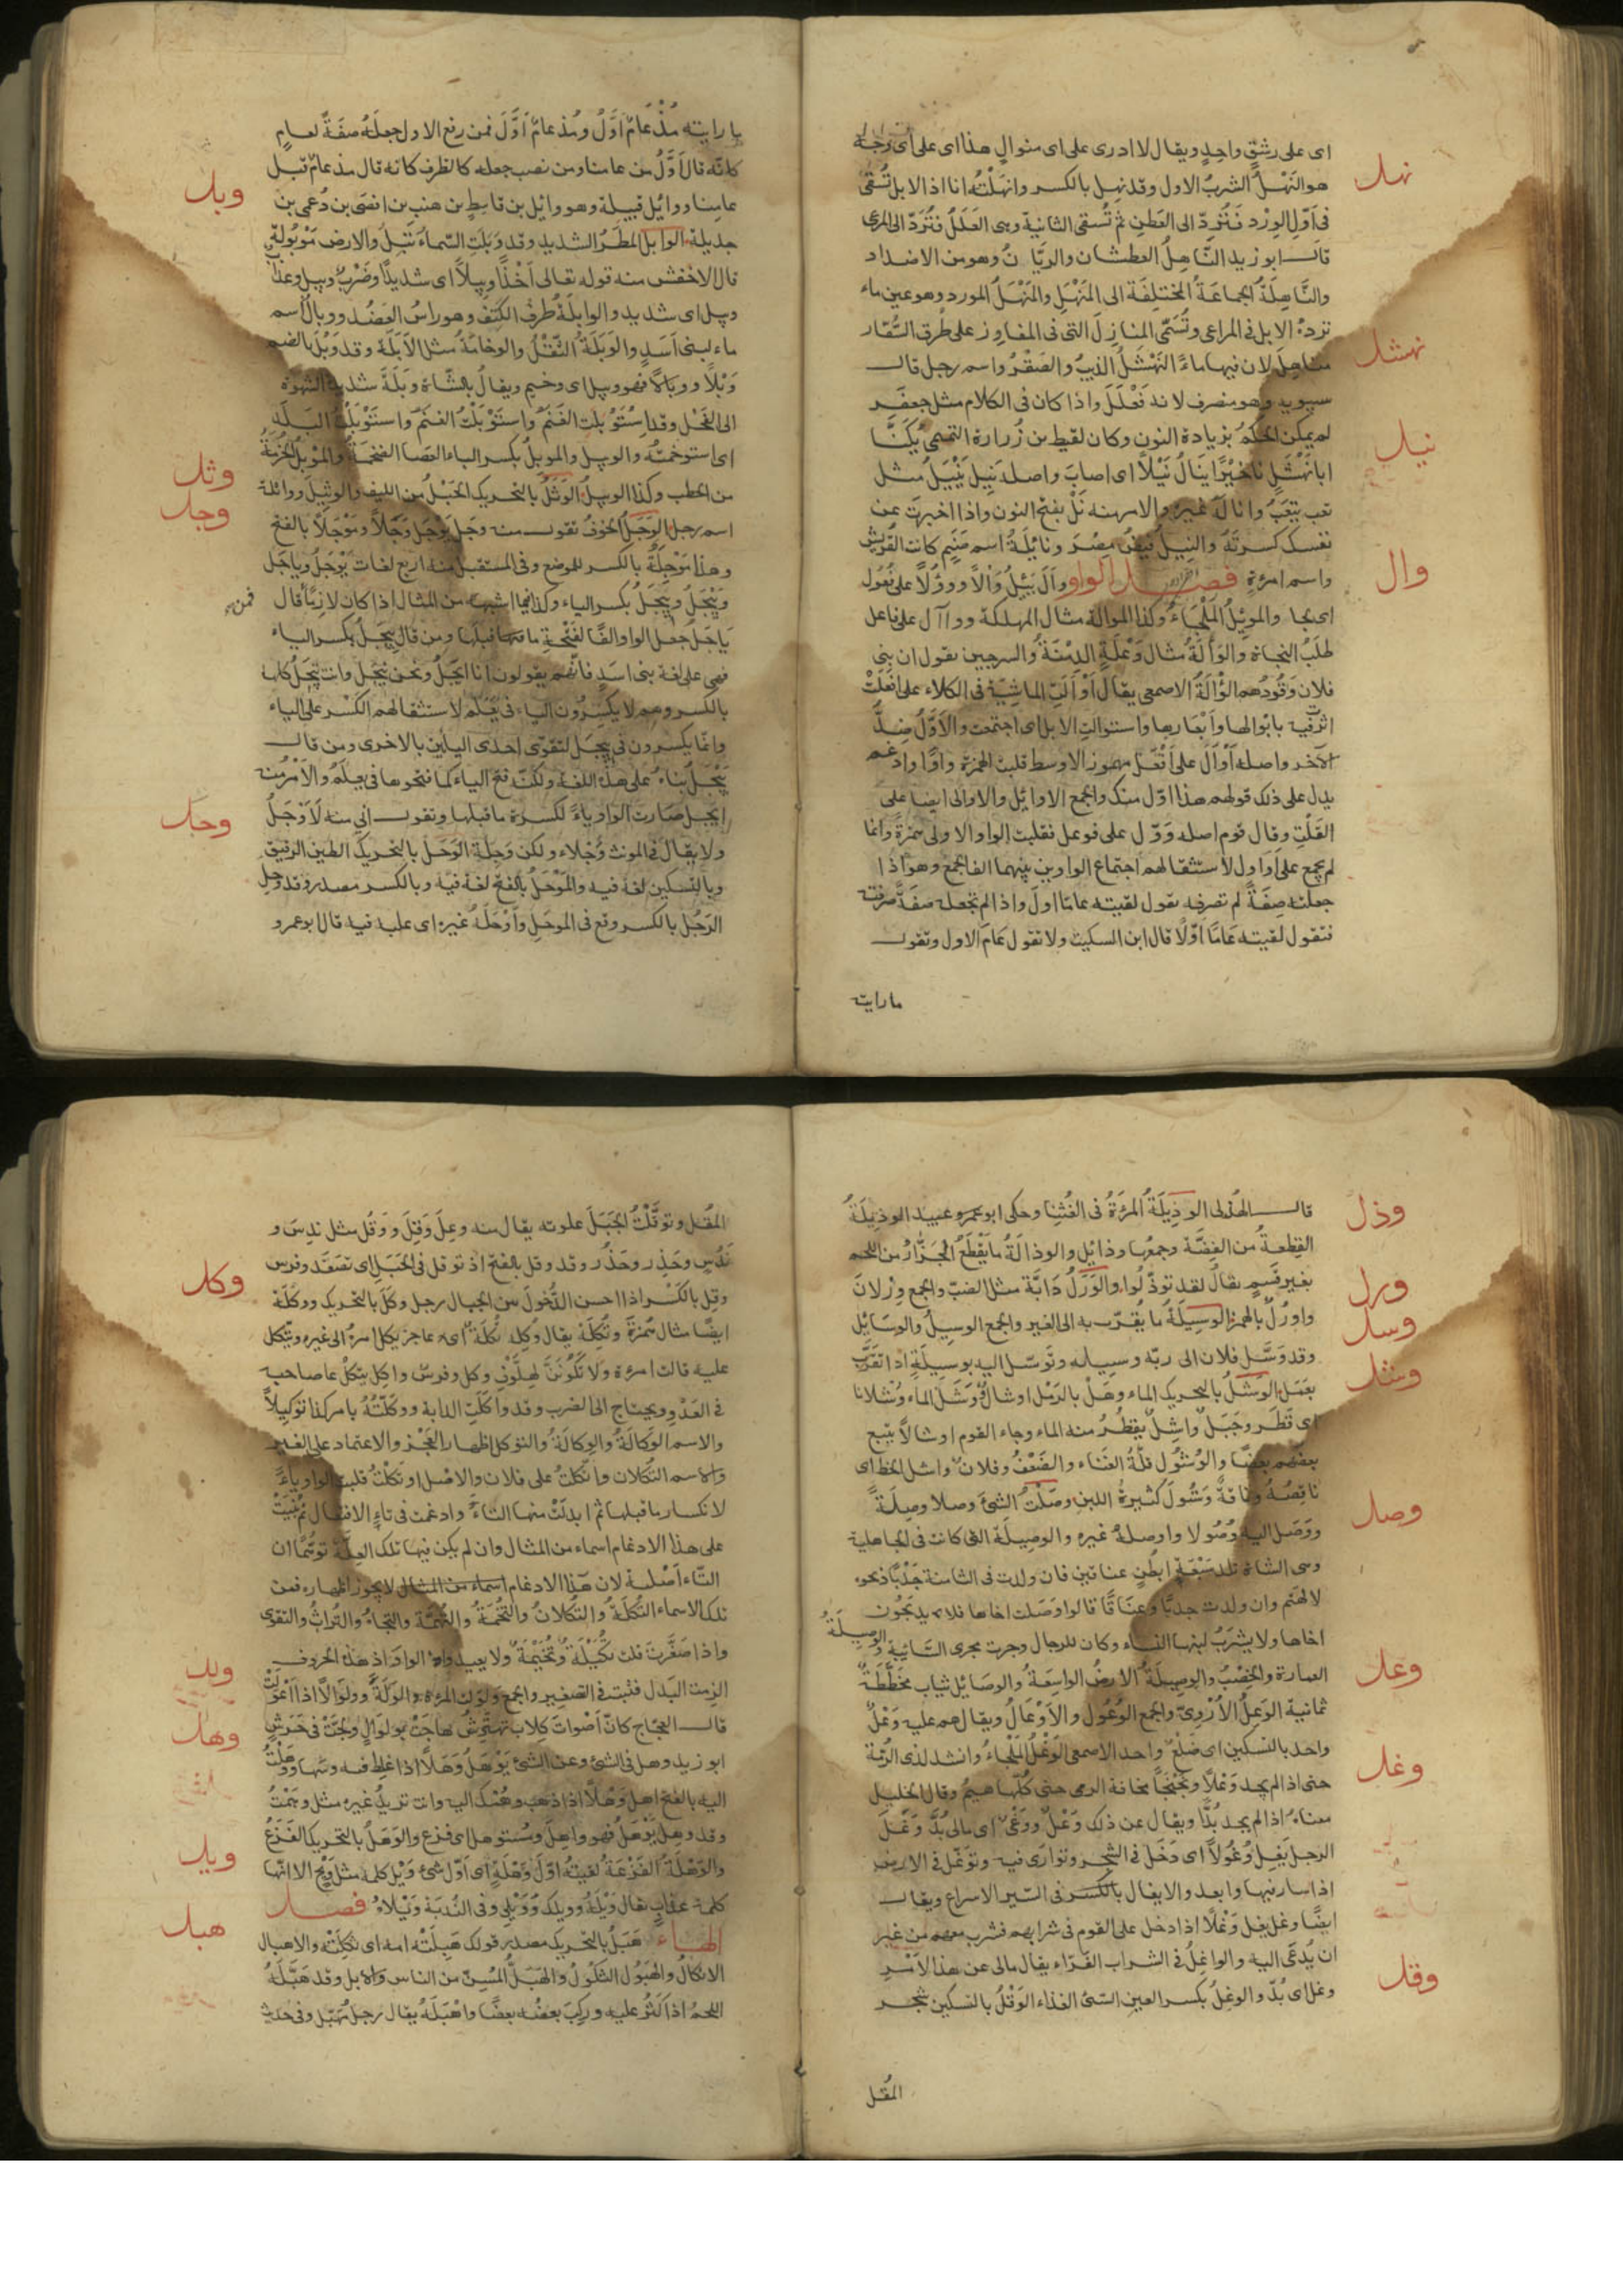 اى على رشق واحد ويقال لا ادرى على اى منوال هذا اى على اى وجه
نهل
هو النَهَلُ الشربُ الاول وقد نهل بالكسر وانهَلْتُه انا اذ الابل تُسْقى
فى اوّل الوِرْد فَتُرَدّ الى العَطَن ثم تُسقى الثانية وهى العَلَلُ فتُرَدّ الى المرعى
قال ابو زيد النّاهِلُ العطشان والريّان وهو من الاضداد
والنَّاهِلَةُ الجماعَةُ المختلِفَة الى المَنْهَلِ والمَنْهَلُ المورد وهو عين ماء
ترِدهُ الابل فى المراعى وتُسَمّى المنازلَ التى فى المفاوز على طُرق السُّفّار
نهشل
مناهِلَ لان فيها ماءً النَهْشَلُ الذيبُ والصَقْرُ واسم رجل قال
سيبويه وهو منصرف لانه فَعْلَل واذا كان فى الكلام مثل جعفَر
لم يمكن الحكمُ بزيادة النون وكان لقيط بن زُرارة التميمى يُكَنَّا
نيل
ابا نَهْشَل نال خيْرًا ينالُ نَيْلاً اى اصابَ واصله نَيِلَ يَنْيَلُ مثل
تعب يتعَبُ وانالَهُ غيرهُ والامر منه نَلْ بفتح النون واذا اخبرت عن
نفسك كسرته والنيلُ فيضُ مصْرَ ونائلَةُ اسم صَنَم كانت لقُريش
وال
واسم امرءةٍ فصل الواو وأَلَ يَئِلُ وَألاً ووؤلاً على فُعُول
اى نجا والموئِلُ المَلْجَاءُ وكذا الموالة مثال المهلكة وواآل على فاعل
طلَبُ النجاة والوَألَةُ مثال وَعْلَةٍ الدِمْنَةُ والسرجين يقول ان بنى
فلان وَقُودُهم الوَأْلَةُ الاصمعى يقال أوْأَلَتِ الماشيَة فى الكلاء على افعَلَتْ
اثّرت فيه بابوالها وابْعارها واستوالت الابل اى اجتمعت والاَوّلُ ضِدُّ
الآخر واصله أوْأَل على افْعَل مهموز الاوسط قلبت الهمزة واوًا وادغم
يدل على ذلك قولهم هذا اوّل منك والجمع الاوائل والاوالى ايضا على
القَلْب وقال قوم اصله وَوّل على فوعل فقلبت الواو الاولى همزةً وانما
لم يجمع على اواول لاستثقالهم اجتماع الواوين بينهما الف الجمع وهو اذا
جعلته صِفَةً لم تصرفه تقول لقيته عامًا اولَ واذا لم تجعله صفةً صرفته
فتقول لقيته عامًا اوّلاً قال ابن السكيت ولا تقول عَامَ الاول وتقول
ما رايته
ما رايته مُذْ عامٌ اوّلُ ومُذ عامٌ اوَّلَ فمن رفع الاول جعلَهُ صفةً لعام
كانّه قال اَوّلُ من عامنا ومن نصب جعله كالظرف كانه قال مذ عامٌ قبل
وبل
عامِنا ووائل قبيلة وهو وائل بن قاسِط بن هِنب بن افصى بن دُعمى بن
جديلة الوابل المطر الشديد وقد وَبَلَت السّماءُ تَبِلُ والارض مَوْبُولة
قال الاخفش منه قوله تعالى اَخْذًا وَبيلاً اى شديدًا وضَرْبٌ وبيل وعذاب
وبيل اى شديد والوابِلَةُ طَرفُ الكَتِف وهو راسُ العَضُد ووبالُ اسم
ماء لبنى اَسَدٍ والوَبَلَةُ الثِّقْلُ والوخامةُ مثل الاَبَلَة وقد وَبُلَ بالضم
وَبْلاً ووبالاً فهو وبيل اى وخيم ويقالُ بالشاة وَبَلَةٌ شديدة الشهوة
الى الفَحْل وقد اسْتَوْبلت الغَنَمُ واستَوْبَلْتُ الغنَمَ واستَوْبَلْتُ البَلَدَ
اى استوخمتُه والوبيل والموبلُ بكسر الباء العَصا الضخمَةُ والموبلُ الحُزْمَةُ
وثل
من الحطب وكذا الوبيلُ الوَثَلُ بالتحريك الحَبْلُ من الليف والوثيل ووائلة
وجل
اسم رجل الوَجَلُ الخوفُ تقول منه وجَلَ يَوْجَلُ وَجَلاً ومَوْجَلاً بالفتح
وهذا مَوْجِلُهُ بالكسر للموضع وفى المستقبل منه اربع لغات يَوْجَلُ وياجَل
وَيَيْجَلُ ويِيجَلُ بكسر الياء وكذا فيما اشبهه من المثال اذا كان لازمًا قال
فمن
يَاجَلُ جعل الواو الفًا لفَتْحَةِ ما قبلها ومن قال يِيجَلُ بكسر الياء
فهى على لغة بنى اسَدٍ فانهم يقولون انا اِيجَلُ ونحن نِيجَل وانت تِيجَلُ كلها
بالكسر وهم لا يكسِرُون الياء فى يَعْلَم لاستثقالهم الكَسْر على الياء
وانّما يكسرون فى يِيجَل لتقوّى احدى اليائين بالاخرى ومن قال
يَيْجَلُ بناه على هذه اللغة ولكنّه فتح الياء كما فتحوها فى يعلم والاَمْرُ منه
وحل
اِيجَل صارت الواو ياءً لكسرة ما قبلها وتقول انى منه لاَوْجَلُ
ولا يقال فى المونث وَجْلاء ولكن وَجِلَة الوَحَلُ بالتحريك الطين الرقيق
وبالتسكين لغة فيه والمَوْحَلُ بالفتح لغة فيه وبالكسر مصدر وقد وَحِل
الرَجُل بالكسر وقع فى الموحَلِ واَوْحَلَهُ غيره اى غلبه فيه قال ابو عمرو
وذل
قال الهُذلى الوَذِيلَةُ المِرْءَةُ فى لغتنا وحكى ابو عمرو عن عبيد الوَذِيلَةُ
القِطعَةُ من الفِضّة وجمعها وذائل والوذالَةُ ما يَقْطَعُ الجَزّارُ من اللحم
ورل
بغير قَسمٍ يقال لقد توذّلوا والوَرَلُ دَابّة مثل الضبّ والجمع وِرْلان
وسل
واورُلٌ بالهمز الوسِيلَةُ ما يُقرّب به الى الغير والجمع الوسيلُ والوسائل
وقد وَسَّل فلان الى ربّه وسيلة وتَوسّل اليه بوسيلة اذا تقَرَّب
وشل
بعَمَل الوشَلُ بالتحريك الماء وهَلْ بالرّمْل اوشالٌ وَوَشَلَ الماء وَشَلانا
اى قَطَر وجَبَلٌ واشِلٌ يقطُرُ منه الماء وجاء القوم اوشالاً يتبع
بعضُهم بعضًا والوُشُولُ قلّةُ الغَناء والضَعْفُ وفلان واشل الحظ اى
وصل
ناقصُهُ وناقةٌ وَشُولٌ كثيرةُ اللبن وصَلْتُ الشىءَ وصلا وصِلَةً
ووَصَلَ اليه وُصُولا واوصلهُ غيره والوصيلَة التى كانت فى الجاهلية
وهى الشاة تلد سَبْعَة ابطُنٍ عناقين فان ولدت فى الثامنة جَدْيًا ذبحوه
لآلهتهم وان ولدت جديًا وعنَاقًا قالوا وصَلت اخاها فلا يذبحون
اخاها ولا يشرَبُ لبنها النساء وكان للرجال وجرت مجرى السائبة والوصيلَةُ
وعل
العمارة والخِصْبُ والوصيلَةُ الارضُ الواسِعَةُ والوصائل ثياب مخَطَّطَةٌ
ثمانية الوَعِلُ الاَرْوِىّ والجمع الوُعُول والاَوْعَالُ ويقال هم عليه وَعْلٌ
وغل
واحد بالتسكين اى ضِلَعٌ واحد الاصمعى الوَعْلُ المَلْجاءُ وانشد لذى الرُمّة
حتى اذا لم يجد وَعْلاً ونَجْنَجَها مخافة الرمى حتى كُلّها هِيمُ وقال الخليل
معناه اذا لم يجد بُدًّا ويقال عن ذلك وَعْلٌ ووَغْىٌ اى مالى بُدٌّ وَغَلَ
الرجل يَغِلُ وُغُولاً اى دَخَلَ فى الشجر وتوارَى فيه وتوغّل فى الارض
اذا سار فيها وابعد والايغال بالكسر فى السّير الاسراع ويقال
ايضًا وغل يغل وَغْلاً اذا دخل على القوم فى شرابهم فشرب معهم من غير
وقل
ان يُدعَى اليه والواغلُ فى الشراب الفَرّاء يقال مالى عن هذا الاَمْرِ
وغل اى بُدٌّ والوغِلُ بكسر الغين السّئُ الغذاء الوَقْلُ بالتسكين شجر
المُقل
المُقْل وتوقَّلْتُ الجَبَلَ علوته يقال منه وعِلٌ وَقِلٌ ووَقُل مثل نَدِسٌ و
نَدُسٌ وحَذِر وحَذُر وقد وقل بالفتح اذ توقل فى الجَبَلِ اى تصَعّد وفرس
وكل
وقِل بالكَسْر اذا احسن الدُّخُولَ بين الجبال رجل وكَلٌ بالتحريك ووكَلَة
ايضًا مثال هُمَزةٍ وتُكَلَة يقال وُكَلَةٌ تُكَلَةٌ اى عاجز يكل امرهُ الى غيره ويتّكل
عليه قالت امرءة ولا تَكُونَنَّ كهِلَّوْفٍ وَكَل وفرسٌ واكِل يتّكل على صاحبه
فى العَدْو ويحتاج الى الضرب وقد واكَلَتِ الدابة ووكّلتُهُ بامر كذا توكيلاً
والاسم الوَكالَةُ والوِكالَةُ والتوكل اظهار العَجْز والاعتماد على الغير
والاسم التُكْلان واتّكلتُ على فلان والاصْل اوتَكَلْتُ قلبت الواو ياءً
لانكسار ما قبلها ثم ابدلَتْ منها التاءُ وادغمت فى تاء الافتعال ثم بُنيَتْ
على هذا الادغام اسماء من المثال وان لم يكن فيها تلك العِلّةُ توهّمًا ان
التّاءَ اَصْلية لان هذا الادغام اسماء من المثال لا يجوز اظهاره فمن
تلك الاسماء التُكَلَةُ والتُكْلانُ والتُخَمَةُ والتُهَمَةُ والتجاهُ والتُراثُ والتقوى
ولل
واذا صَغَّرتَ قلت تُكَيْلَةٌ وتُخَيْمَةٌ ولا يعيد الواوَ اذ هذه الحروف
الزِمت البَدَل فثبتت فى التصغير والجمع ولوَلَت المرءة وَلْوَلَةً ووِلْوَالاً اذا اعْوَلَتْ
وهل
قال العجّاج كأنّ اَصْواتَ كِلابٍ تهْتَرِشُ هَاجَتْ بوَلْوَالٍ ولجّتْ فى حَرَشِ
ابو زيد وهل فى الشئ وعن الشئ يَوْهَلُ وَهَلاً اذا غلِط فيه وسَها ووَهَلْتُ
اليه بالفتح اهل وَهْلاً اذا ذهب وهمُك اليه وانت تريدُ غيره مثل وهَمْتُ
وقد وهِل يَوْهَلُ فهو واهِل ومُستوهل اى فزع والوَهَلُ بالتحريك الفَزَعُ
ويل
والوَهْلَةُ الفَزْعَةُ لقيتُهُ اوّلَ وَهْلَةٍ اى اوّل شئ وَيْل كلمة مثل وَيْح الا انها
كلمة عذاب يقال وَيْلَهُ وويلك ووَيْلى وفى النُدبَة وَيْلاهُ فصل
هبل
الهاء هَبَلُ بالتحريك مصدر قولك هَبِلَتْهُ امه اى ثَكِلَتْه والاهبال
الاثكالُ والهَبُول الثكُولُ والهِبَلُّ المُسِنّ من الناس والابل وقد هَبَّلَهُ
اللحمُ اذا كَثُر عليه وركِبَ بعضُه بعضًا واهْبَلَهُ يقال رجل مُهبّل وفى حديث